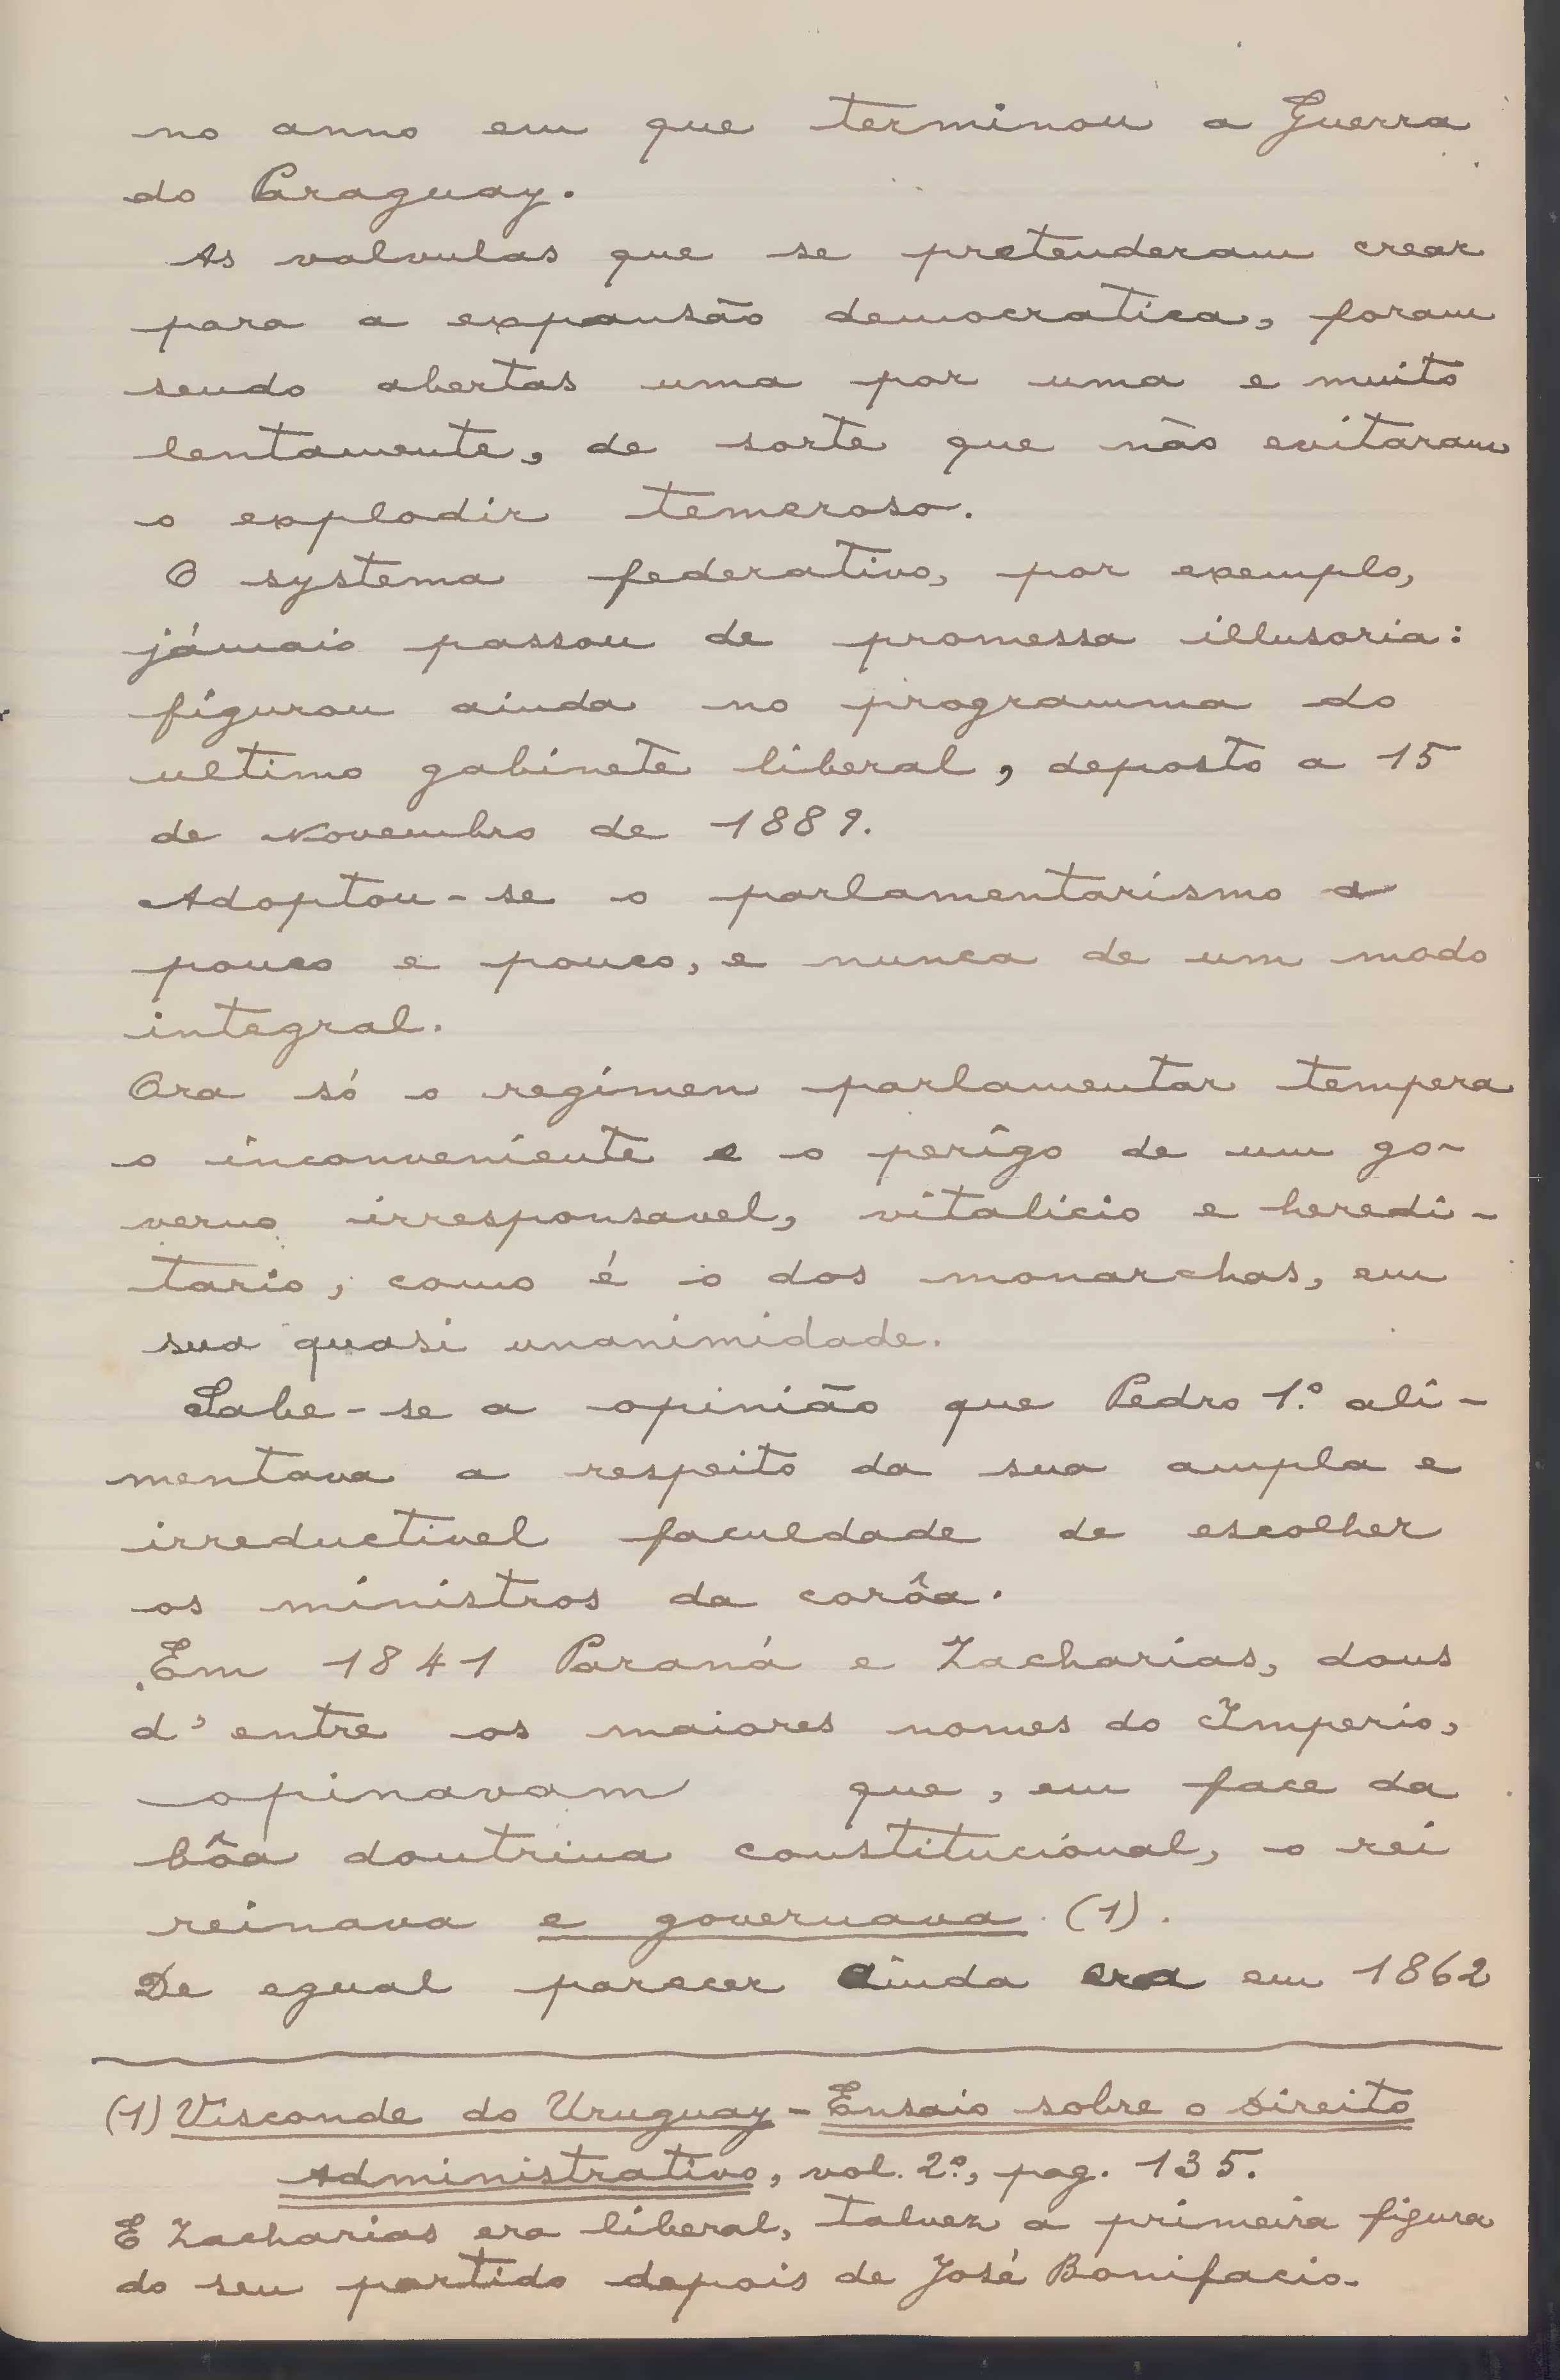 no anno em que terminou a Guerra
do Paraguay.
As valvulas que se pretenderam crear
para a expansão democratica, foram
sendo abertas uma por uma e muito
lentamente, de sorte que não evitaram
o explodir temeroso.
O systema federativo, por exemplo,
jámais passou de promessa illusoria:
figurou ainda no programma do
ultimo gabinete liberal, deposto a 15
de Novembro de 1889.
Adoptou-se o parlamentarismo a
pouco e pouco, e nunca de um modo
integral.
Ora só o regimen parlamentar tempera
o inconveniente e o perigo de um go-
verno irresponsavel, vitalicio e heredi-
tario, como é o dos monarchas, em
sua quasi unanimidade.
Sabe-se a opinião que Pedro 1.º ali-
mentava a respeito da sua ampla e
irreductivel faculdade de escolher
os ministros da corôa.
Em 1841 Paraná e Zacharias, dous
d'entre os maiores nomes do Imperio,
opinavam que, em face da
bôa doutrina constitucional, o rei
reinava e governava (1).
De egual parecer ainda era em 1862
(1) Visconde do Uruguay - Ensaio sobre o Direito
Administrativo, vol. 2º, pag. 135.
E Zacharias era liberal, talvez a primeira figura
do seu partido depois de José Bonifacio.